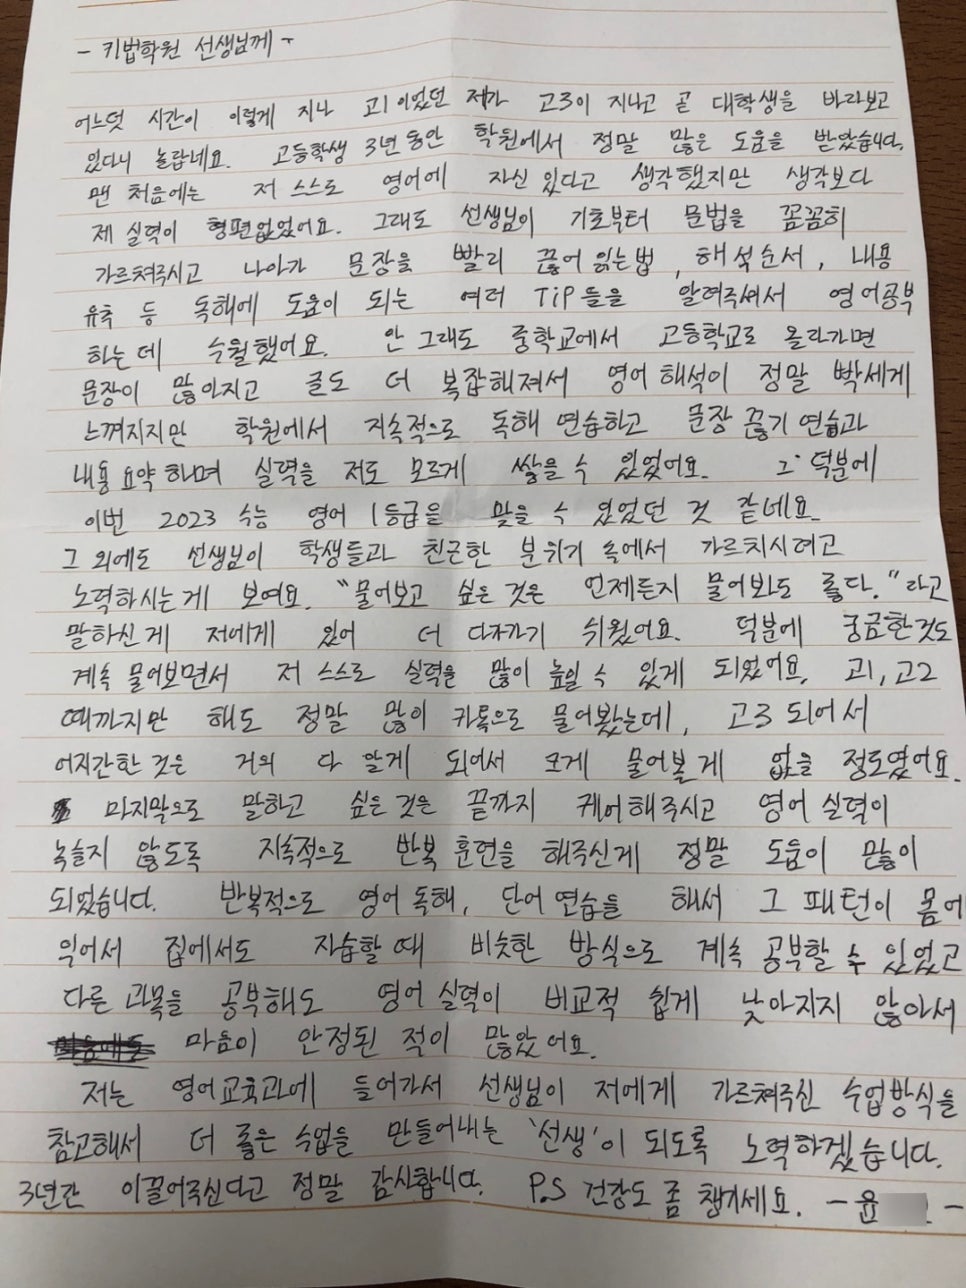 - 키법학원 선생님께 -
어느덧 시간이 이렇게 지나 고1이었던 제가 고3이 지나고 곧 대학생을 바라보고
있다니 놀랍네요. 고등학생 3년 동안 학원에서 정말 많은 도움을 받았습니다.
맨 처음에는 저 스스로 영어에 자신 있다고 생각했지만 생각보다
제 실력이 형편없었어요. 그래도 선생님이 기초부터 문법을 꼼꼼히
가르쳐주시고 나아가 문장을 빨리 끊어 읽는법, 해석순서, 내용
유추 등 독해에 도움이 되는 여러 TiP들을 알려주셔서 영어공부
하는데 수월했어요. 안 그래도 중학교에서 고등학교로 올라가면
문장이 많아지고 글도 더 복잡해져서 영어 해석이 정말 빡세게
느껴지지만 학원에서 지속적으로 독해 연습하고 문장 끊기 연습과
내용 요약하며 실력을 저도 모르게 쌓을 수 있었어요. 그 덕분에
이번 2023 수능 영어 1등급을 맞을 수 있었던 것 같네요.
그 외에도 선생님이 학생들과 친근한 분위기 속에서 가르치시려고
노력하시는게 보여요. "물어보고 싶은 것은 언제든지 물어봐도 좋다."라고
말하신게 저에게 있어 더 다가가기 쉬웠어요. 덕분에 궁금한것도
계속 물어보면서 저 스스로 실력을 많이 높일 수 있게 되었어요. 고1, 고2
때까지만 해도 정말 많이 카톡으로 물어봤는데, 고3 되어서
어지간한 것은 거의 다 알게 되어서 크게 물어볼게 없을 정도였어요.
마지막으로 말하고 싶은 것은 끝까지 케어해주시고 영어 실력이
녹슬지 않도록 지속적으로 반복 훈련을 해주신게 정말 도움이 많이
되었습니다. 반복적으로 영어 독해, 단어 연습을 해서 그 패턴이 몸에
익어서 집에서도 자습할 때 비슷한 방식으로 계속 공부할 수 있었고
다른 과목을 공부해도 영어 실력이 비교적 쉽게 낮아지지 않아서
마음이 안정된 적이 많았어요.
저는 영어교육과에 들어가서 선생님이 저에게 가르쳐주신 수업방식을
참고해서 더 좋은 수업을 만들어내는 '선생'이 되도록 노력하겠습니다.
3년간 이끌어주신다고 정말 감사합니다. P.S 건강도 좀 챙기세요. - 윤 -